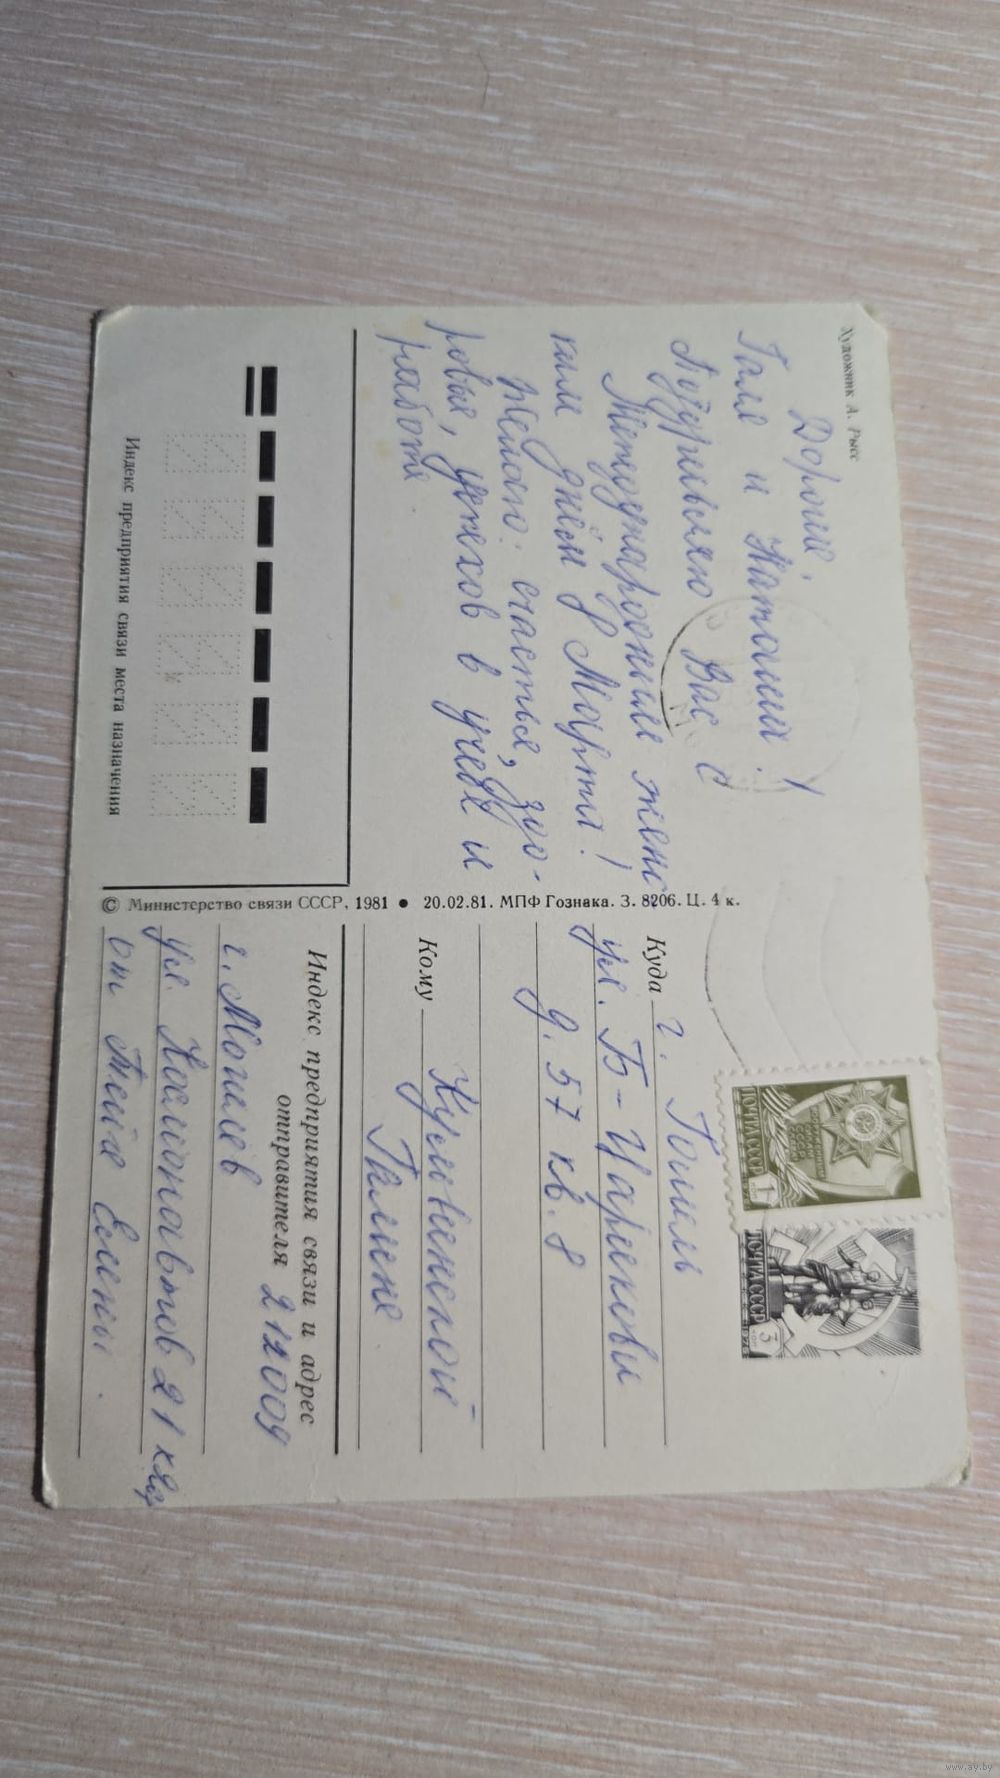 Художник А. Рысс
Дорогие
Галя и Наташа!
Поздравляю Вас с
Международным женс
ким днём 8 Марта!
Желаю: счастья, здо-
ровья, успехов в учёбе и
работе
Индекс предприятия связи места назначения
© Министерство связи СССР, 1981 ● 20.02.81. МПФ Гознака. З. 8206. Ц. 4 к.
ПОЧТА СССР 1
ПОЧТА СССР 3
Куда г. Гомель
ул. Б-Царикова
д. 57 кв. 8
Кому
Галине
Индекс предприятия связи и адрес
отправителя 212009
г. Могилев
ул. Космонавтов 21
от Тети Елены.
www.ay.by